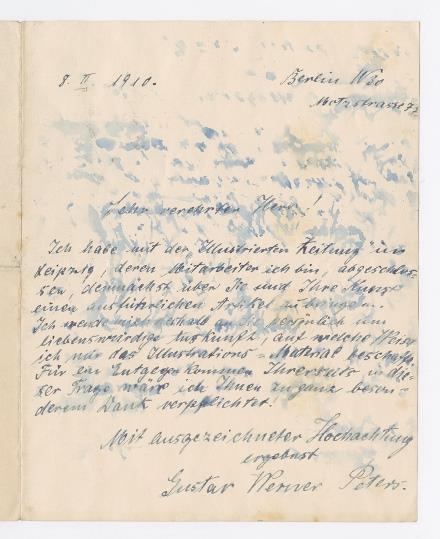 8. II. 1910. Berlin W30
Motzstrasse 73
Sehr verehrter Herr!
Ich habe mit der "Illustrierten Zeitung" in
Leipzig, deren Mitarbeiter ich bin, abgeschlos-
sen, demnächst über Sie und Ihre Kunst
einen ausführlichen Artikel zu bringen.
Ich wende mich deshalb an Sie persönlich um
liebenswürdige Auskunft, auf welche Weise
ich mir das Illustrations-Material beschaffe.
Für ein Entgegenkommen Ihrerseits in die-
ser Frage wäre ich Ihnen zu ganz beson-
derem Dank verpflichtet.
Mit ausgezeichneter Hochachtung
ergebenst
Gustav Werner Peters.